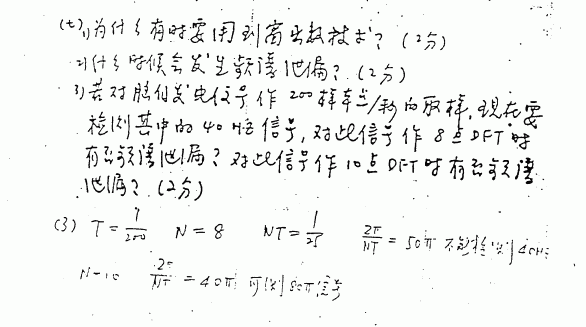 (七)1)为什么有时要用到离出数技术?(2分)
2)什么时候会发生频谱泄漏?(2分)
3)若对脑使发电信号作200样本点/秒的取样,现在要
检测其中的40HZ信号,对此信号作8点DFT时
有否频谱泄漏?对此信号作10点DFT时有否频谱
泄漏?(2分)
(3) T=1/200 N=8 NT=1/25 2π/NT=50π 不能检测40HZ
N=10 2π/NT=40π 可测80π信号